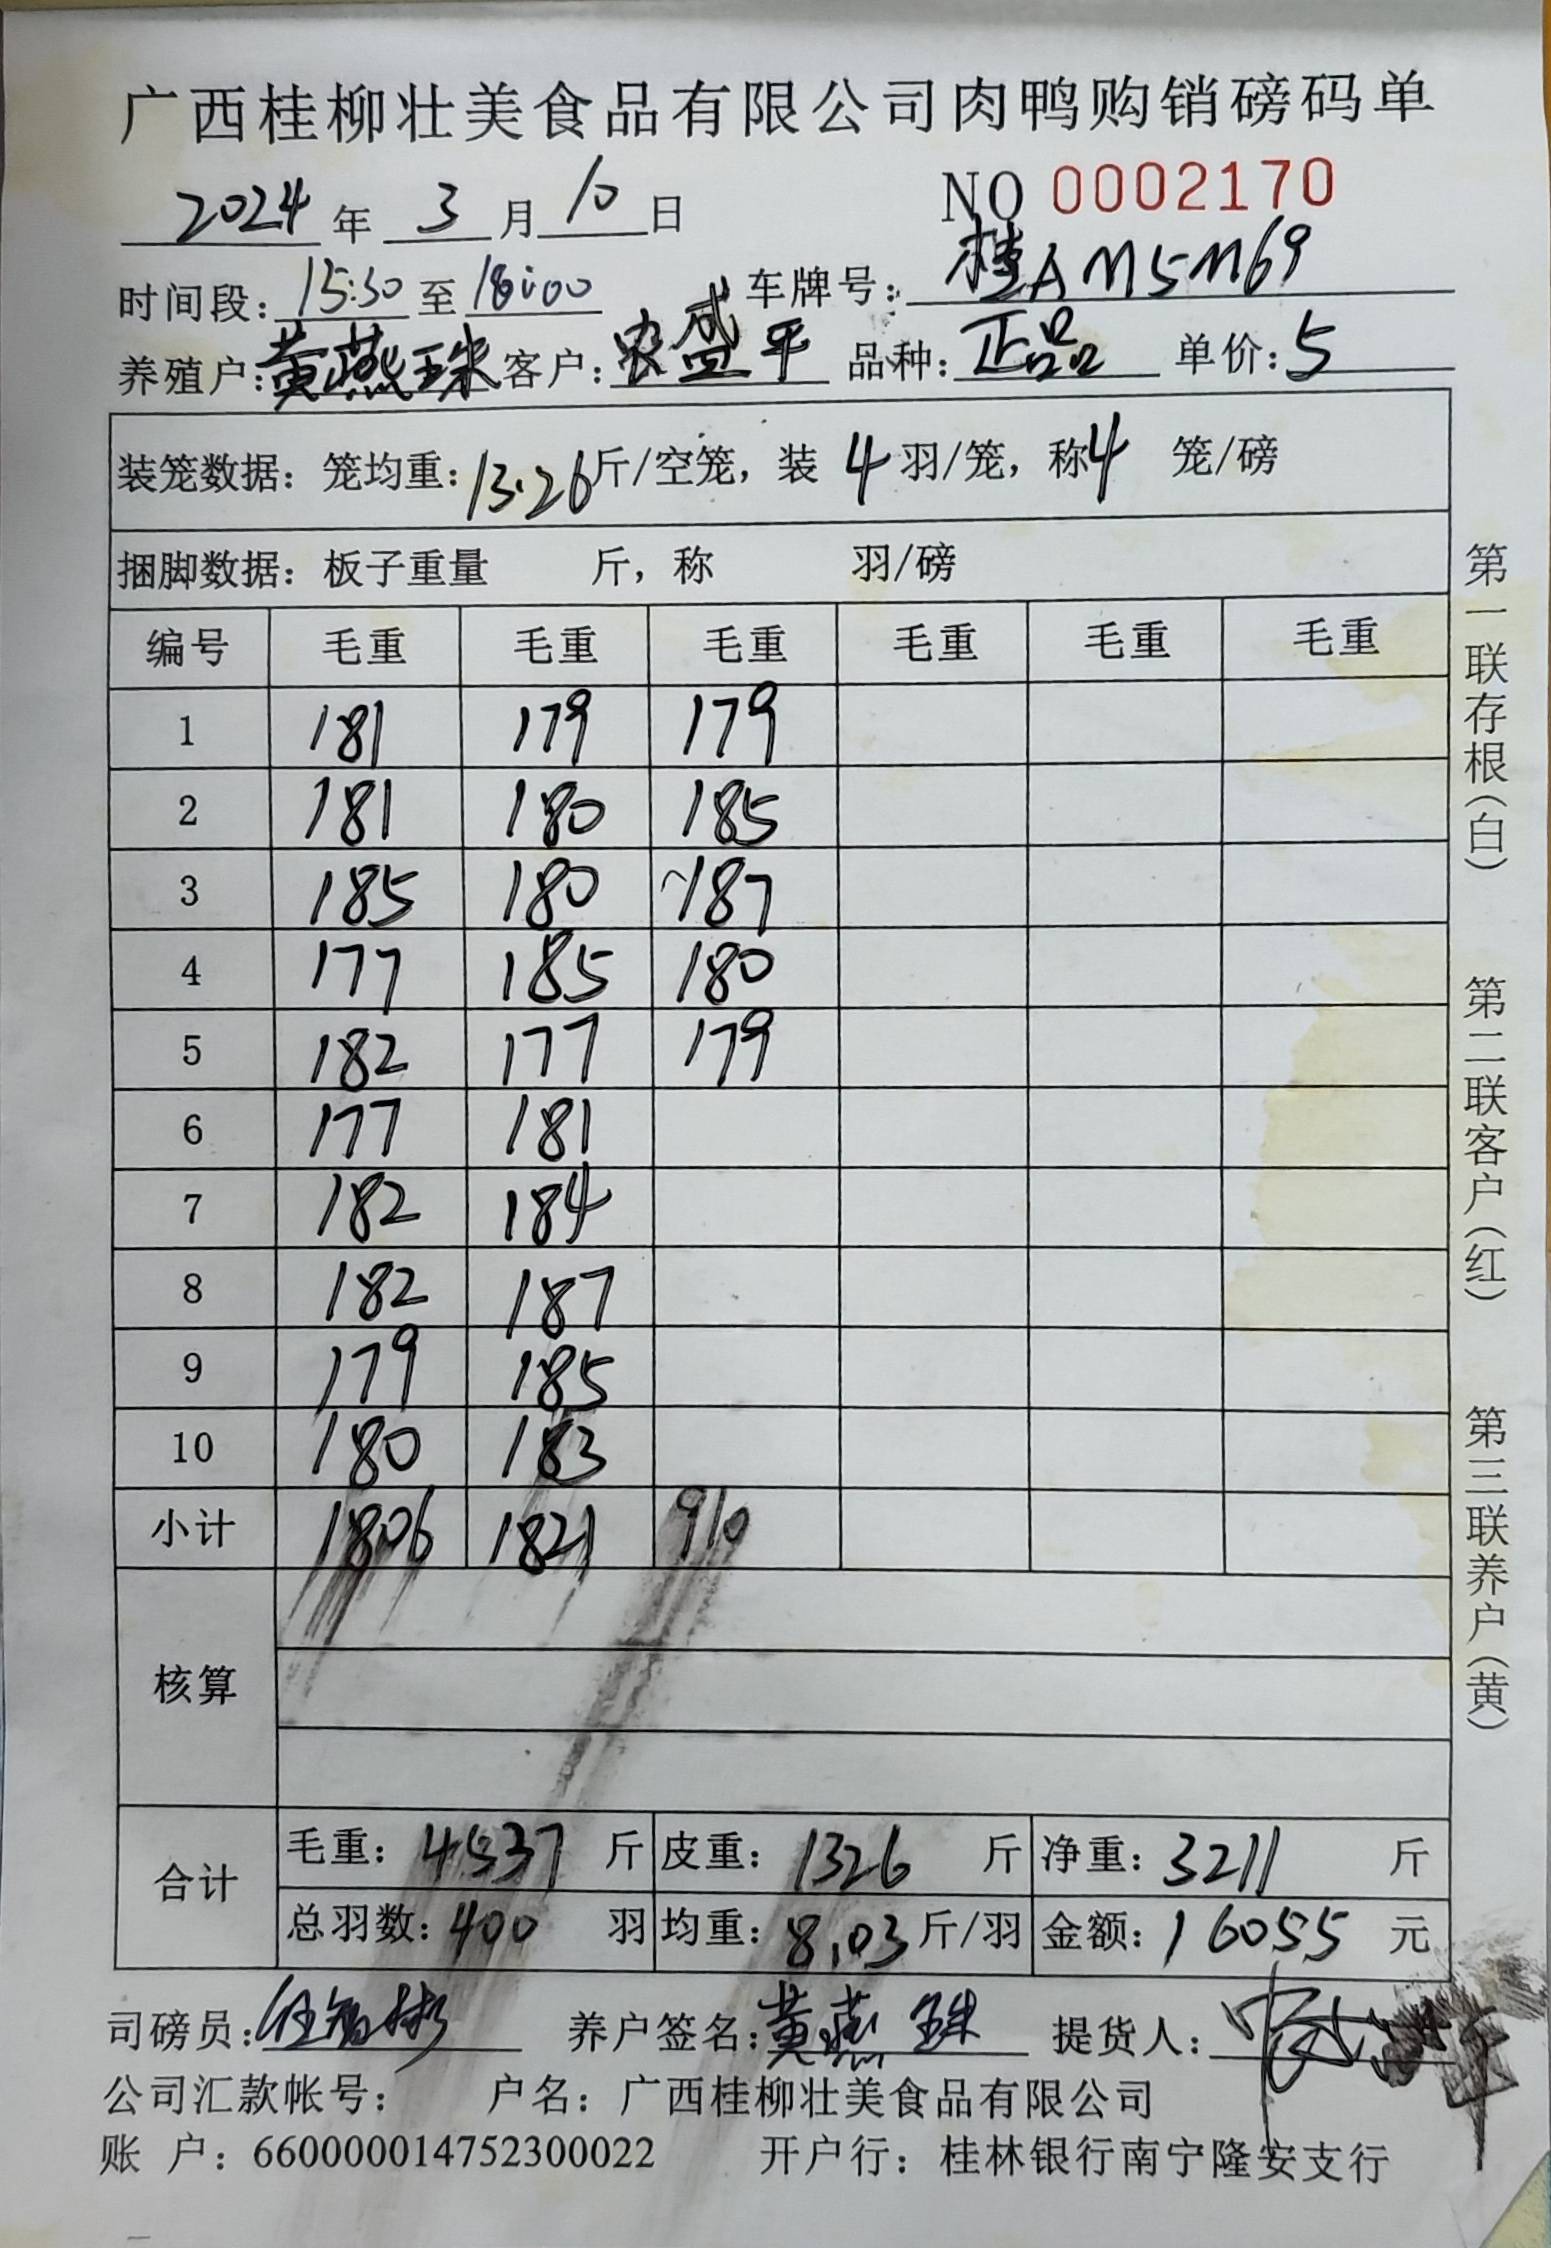 广西桂柳壮美食品有限公司肉鸭购销磅码单
2024年3月10日 NO 0002170
时间段：15:30至18:00 车牌号：桂AM5M69
养殖户：黄燕珠 客户：农盛平 品种：正品 单价：5
装笼数据：笼均重：13.26斤/空笼，装4羽/笼，称4笼/磅
捆脚数据：板子重量 斤，称 羽/磅
编号 毛重 毛重 毛重 毛重 毛重 毛重
1 181 179 179
2 181 180 185
3 185 180 187
4 177 185 180
5 182 177 179
6 177 181
7 182 184
8 182 187
9 179 185
10 180 183
小计 1806 1821 910
核算
合计
毛重：4537斤 皮重：1326斤 净重：3211斤
总羽数：400羽 均重：8.03斤/羽 金额：16055元
司磅员： 养户签名：黄燕珠 提货人：
公司汇款帐号： 户名：广西桂柳壮美食品有限公司
账 户：660000014752300022 开户行：桂林银行南宁隆安支行
第一联存根（白） 第二联客户（红） 第三联养户（黄）